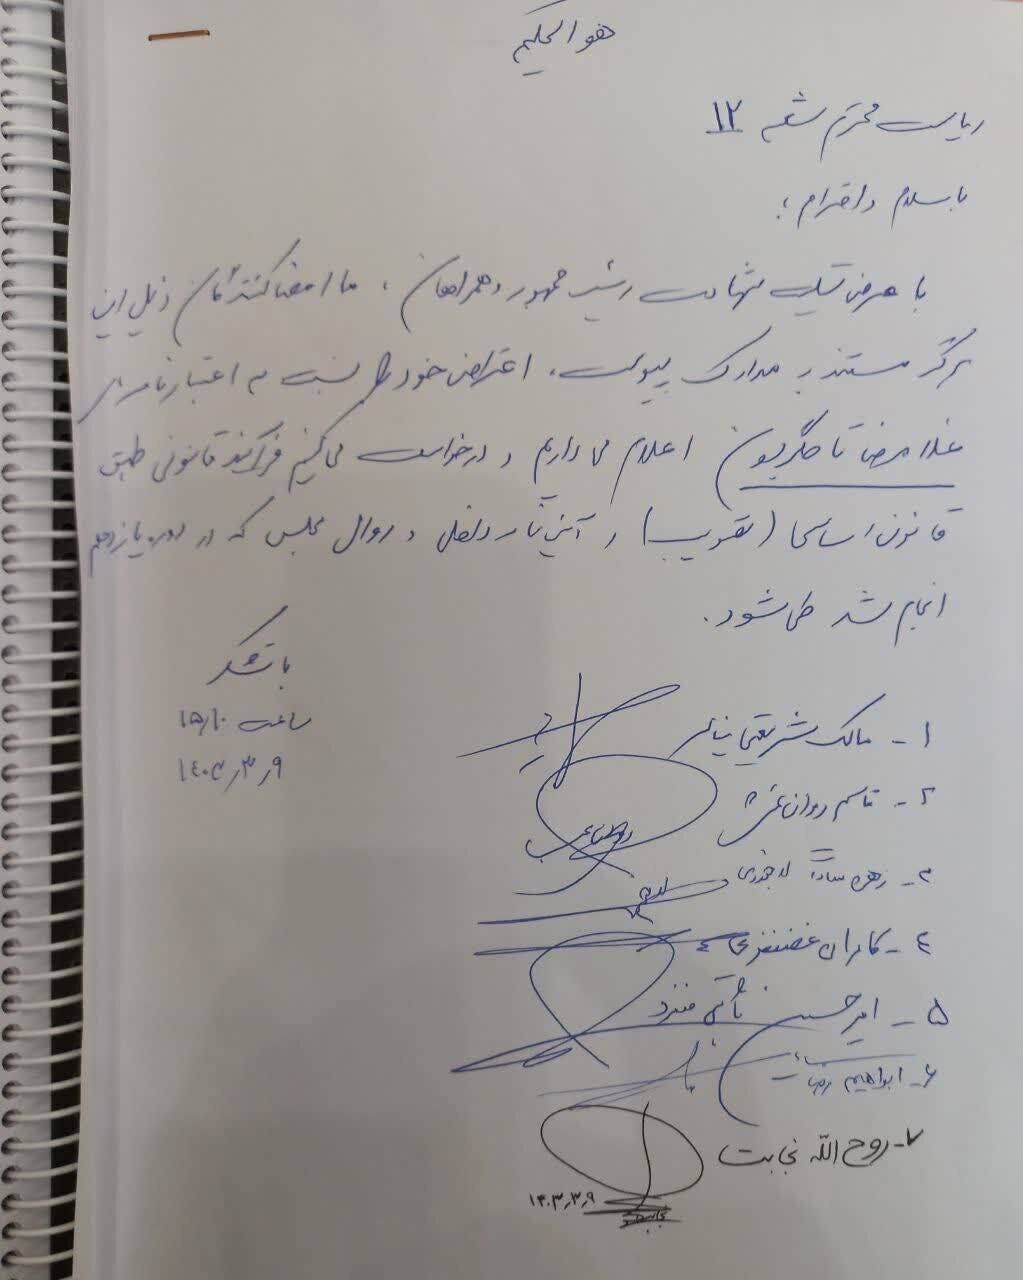 هو الحکیم
ریاست محترم شعبه ۱۲
با سلام و احترام؛
با عرض تسلیت شهادت رئیس جمهور و همراهان، ما امضاکنندگان ذیل این
برگه مستند به مدارک پیوست، اعتراض خود را نسبت به اعتبارنامه آقای
غلامرضا تاجگردون اعلام می داریم و درخواست می کنیم فرآیند قانونی طبق
قانون اساسی (تصویب) و آئین نامه داخلی و روال مجلس که در دوره یازدهم
انجام شد طی شود.
با تشکر
ساعت ۱۵/۱۰
۱۴۰۳٫۳٫۹
۱- مالک شریعتی نیاسر
۲- قاسم روانبخش
۳- زهره سادات لاجوردی
۴- کامران غضنفری
۵- امیرحسین ثابتی منفرد
۶- ابراهیم رضایی
۷- روح اللّه نجابت
۱۴۰۳٫۳٫۹